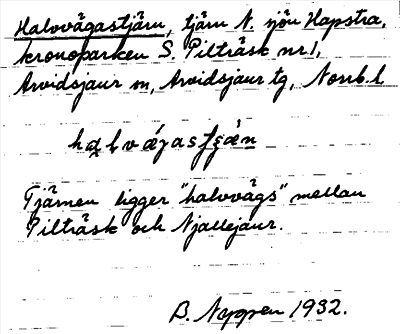 Halvvägastjärn, tjärn N. sjön Hapstra,
kronoparken S. Pilträsk nr 1,
Arvidsjaur sn, Arvidsjaur tg, Norrb. l.
Tjärnen ligger "halvvägs" mellan
Pilträsk och Njallejaur.
B. Nyppen 1932.